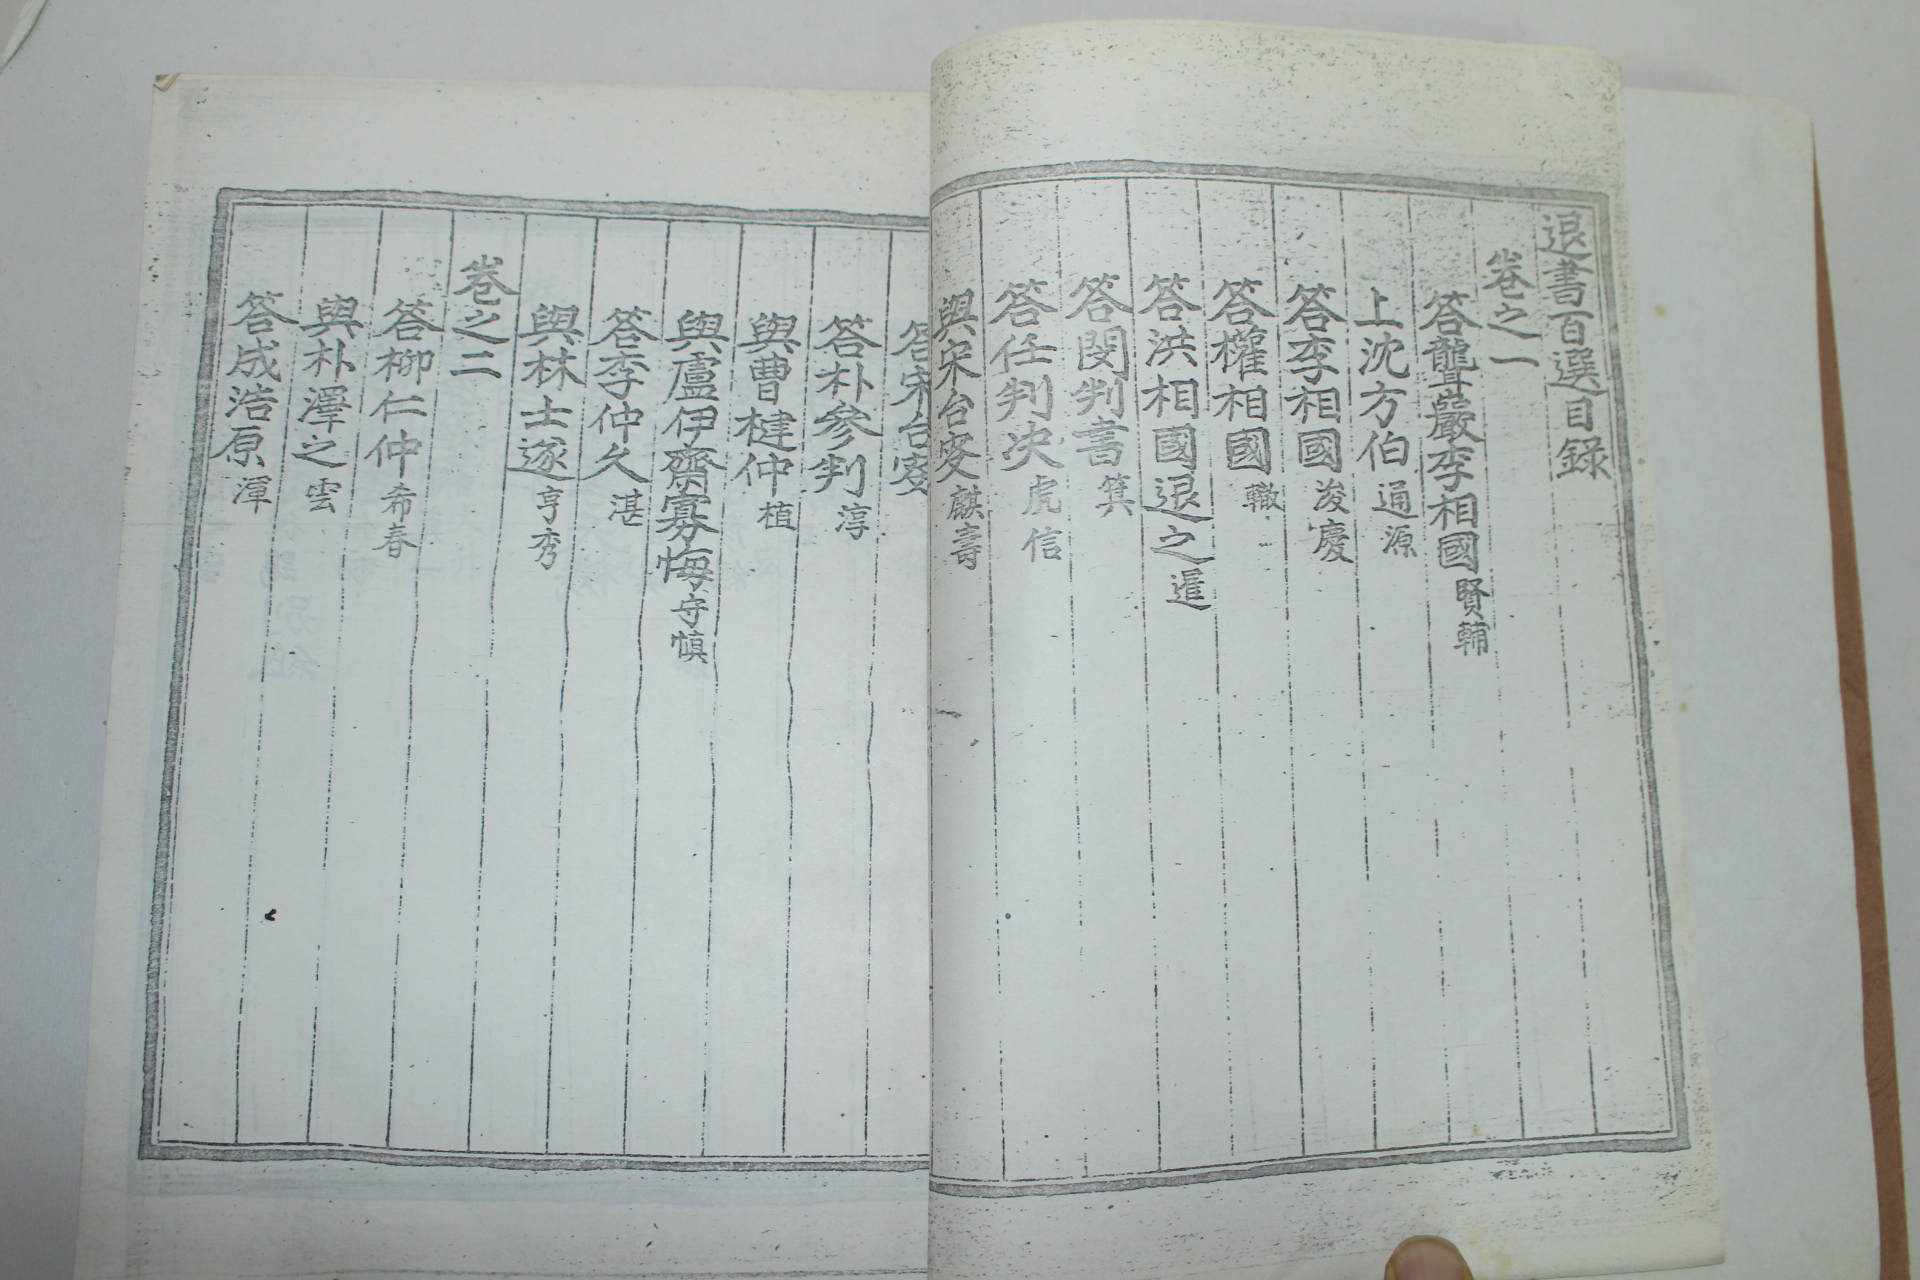 退書百選目錄
卷之一
答聾巖李相國 賢輔
上沈方伯 通源
答李相國 浚慶
答權相國 轍
答洪相國退之 暹
答閔判書 箕
答任判決 虎信
與宋台叟 麒壽
答宋台叟
答朴參判 淳
與曹楗仲 植
與盧伊齋寡悔 守愼
答李仲久 湛
與林士遂 亨秀
卷之二
答柳仁仲 希春
與朴澤之 雲
答成浩原 渾